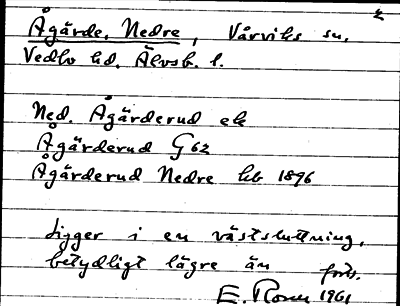 2
Ågärde, Nedre, Vårviks sn.
Vedbo hd. Älvsb. l.
Ned. Ågärderud ek
Ågärderud G62
Ågärderud Nedre hb 1896
Ligger i en västsluttning,
betydligt lägre än forts.
E. 1961